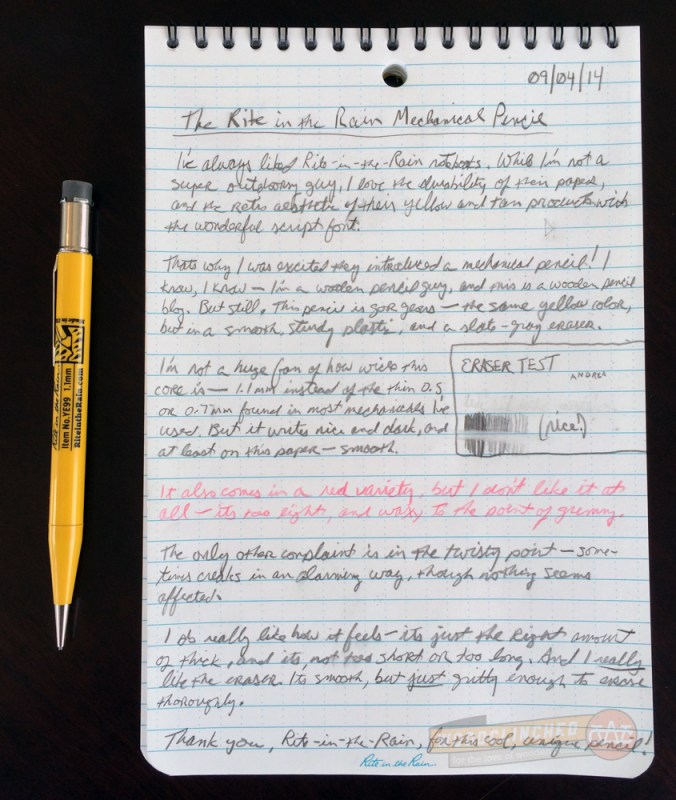 09/04/14
The Rite in the Rain Mechanical Pencil
I've always liked Rite-in-the-Rain notebooks. While I'm not a
super outdoorsy guy, I love the durability of their paper,
and the retro aesthetic of their yellow and tan products with
the wonderful script font.
Thats why I was excited they introduced a mechanical pencil! I
know, I know — I'm a wooden pencil guy, and this is a wooden pencil
blog. But still. This pencil is gorgeous — the same yellow color,
but in a smooth, sturdy plastic, and a slate-gray eraser.
I'm not a huge fan of how wide this
core is — 1.1mm instead of the thin 0.5
or 0.7mm found in most mechanicals I've
used. But it writes nice and dark, and
at least on this paper — smooth.
ERASER TEST
(nice!)
It also comes in a red variety, but I don't like it at
all — its too light, and waxy to the point of gummy.
The only other complaint is in the twisty point — some-
times creaks in an alarming way, though nothing seems
affected.
I do really like how it feels — its just the right amount
of thick, and its not too short or too long. And I really
like the eraser. Its smooth, but just gritty enough to erase
thoroughly.
Thank you, Rite-in-the-Rain, for this cool, unique pencil!
Rite in the Rain
Rite in the Rain
Item No. YE99 1.1mm
RiteintheRain.com